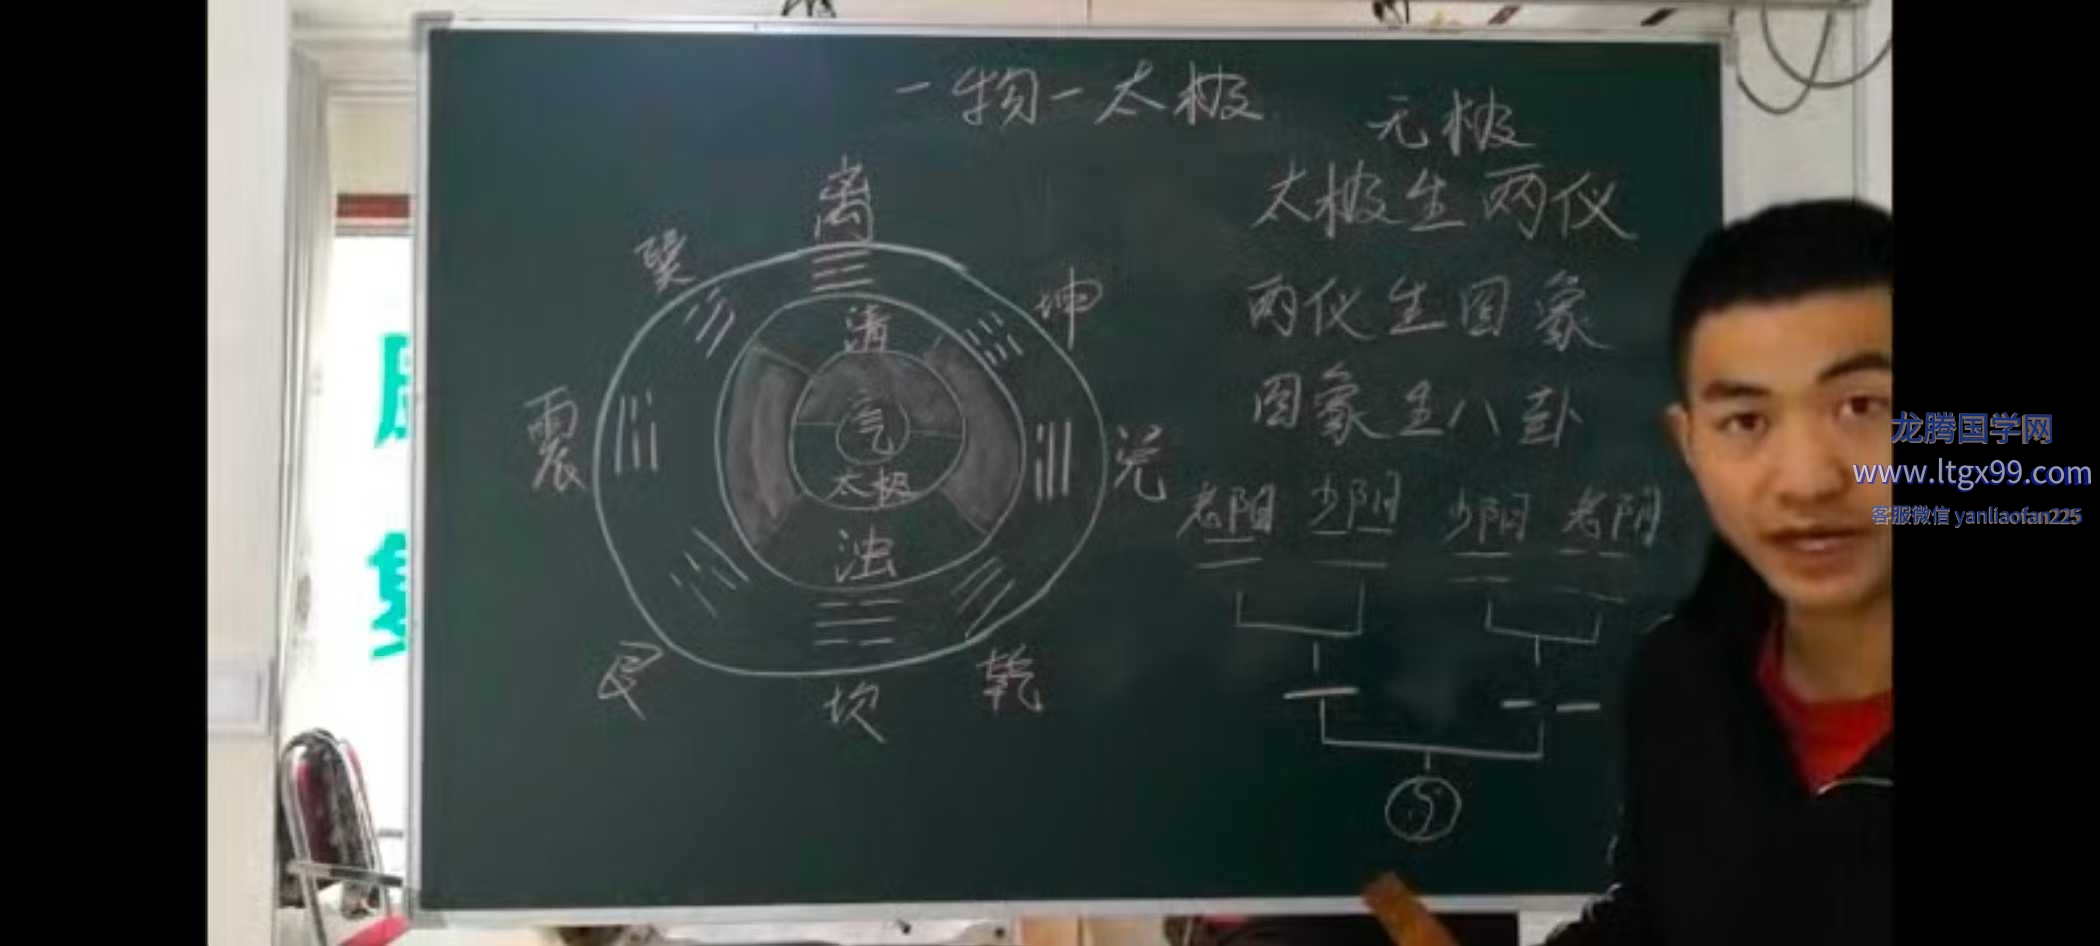 一物一太极
无极
太极生两仪
两仪生四象
四象生八卦
老阳 少阴 少阳 老阴
离
巽
坤
震
兑
艮
坎
乾
清
气
太极
浊
龙腾国学网
www.ltgx99.com
客服微信 yanliaofan225